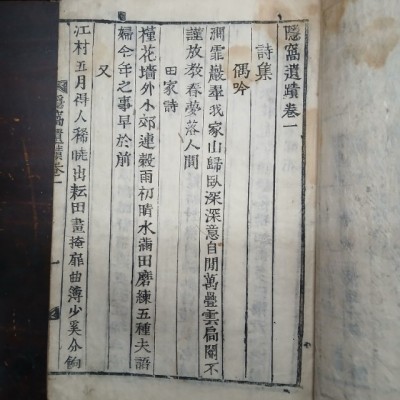 隱窩遺蹟卷一
詩集
偶吟
洞霏巖翠我家山歸臥深深意自閒萬疊雲扃關不
謹放教春夢落人間
田家詩
槿花墻外小郊連穀雨初晴水滿田磨鍊五種夫語
婦今年之事早於前
又
江村五月得人稀曉出耘田晝掩扉曲簿少奚分餉
隱窩遺蹟卷一
一